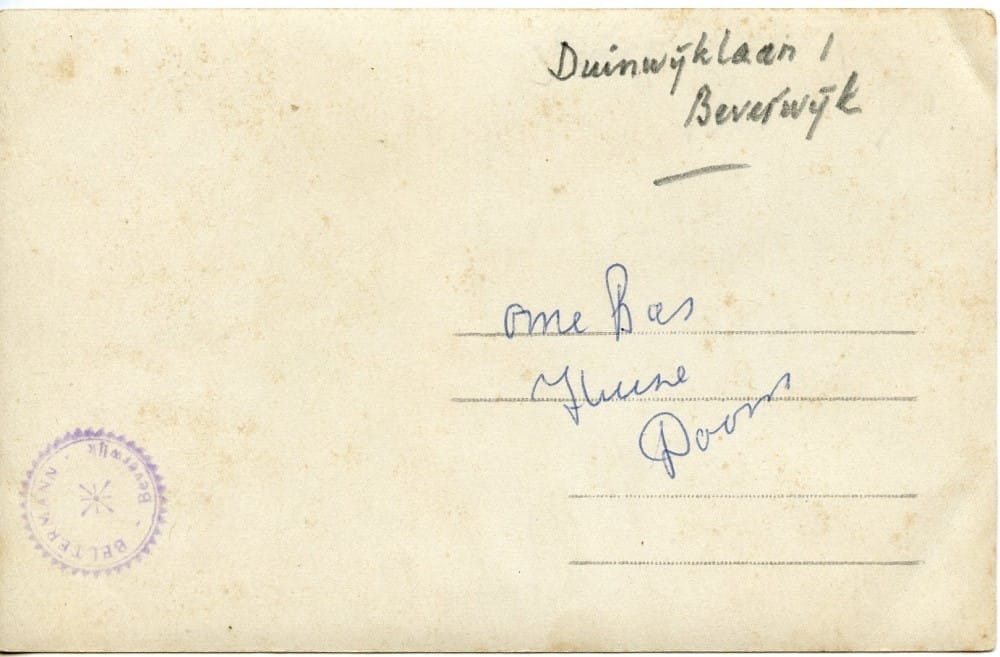 Duinwijklaan 1
Beverwijk
ome Bas
Doorn
BELTERMANN - Beverwijk -